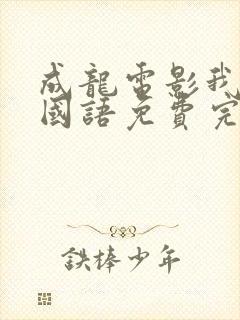 成龍電影我
國語免費完
鉄棒少年